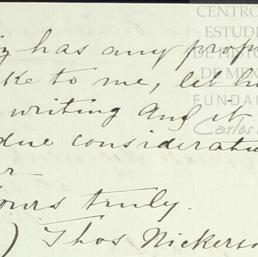 has any prop
ke to me, let h
writing and it
due considerati
yours truly.
) Thos Nickers
CENTRO
ESTUD
DE HISTO
DE MÉXI
FUNDA
Carlos